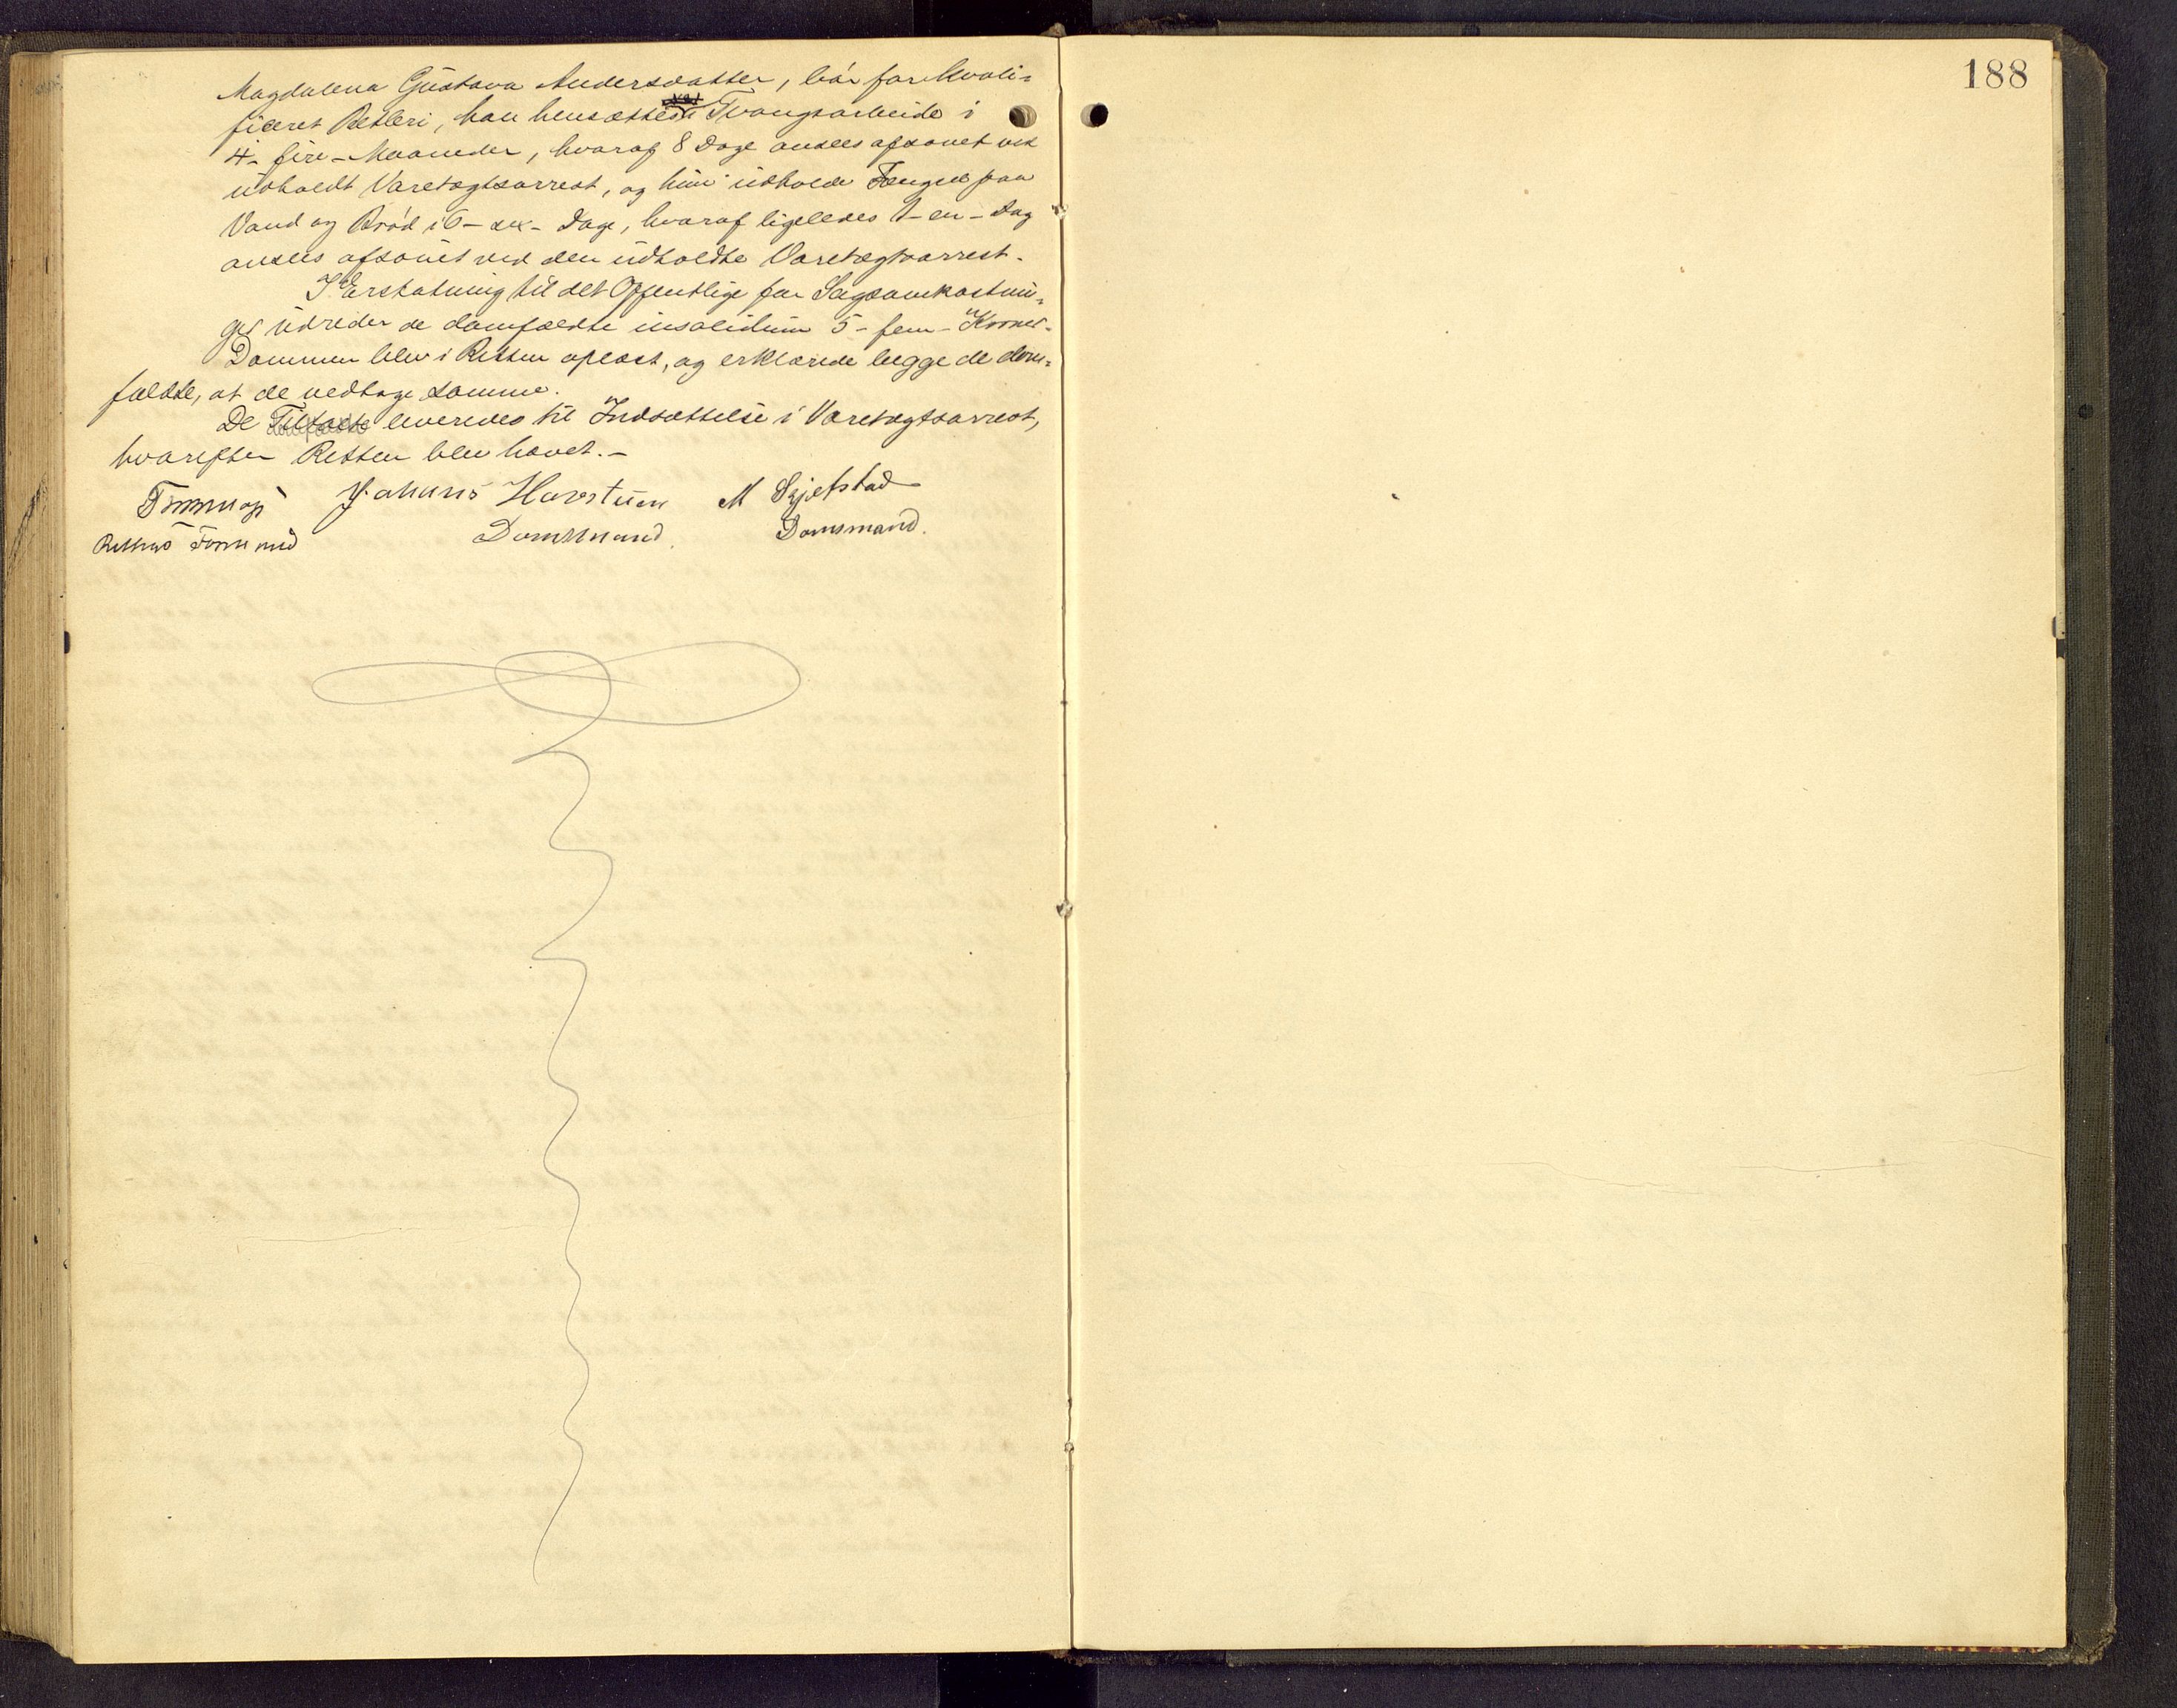 Magdalena Gustava Andersdatter, bør for kvali-
ficeret Betleri, han hensættes til Tvangsarbeide i
4 - fire - Maaneder, hvoraf 8 Dage ansees afsonet ved
udholdt Varetægtsarrest, og hun udholde Fængsel paa
Vand og Brød i 6 - sex - Dage, hvoraf ligeledes 1 - en - Dag
ansees afsonet ved den udholdte Varetægtsarrest.
I Erstatning til det Offentlige for Sagsomkostnin-
ger udreder de domfældte insolidum 5 - fem - Kroner.
Dommen blev i Retten oplæst, og erklærede begge de dom-
fældte, at de vedtage samme.
De domfældte leveredes til Indsættelse i Varetægtsarrest,
hvorefter Retten blev hævet. -
Johans Havstuen M Sjetstad
Rettens Formand Domsmand. Domsmand.
188